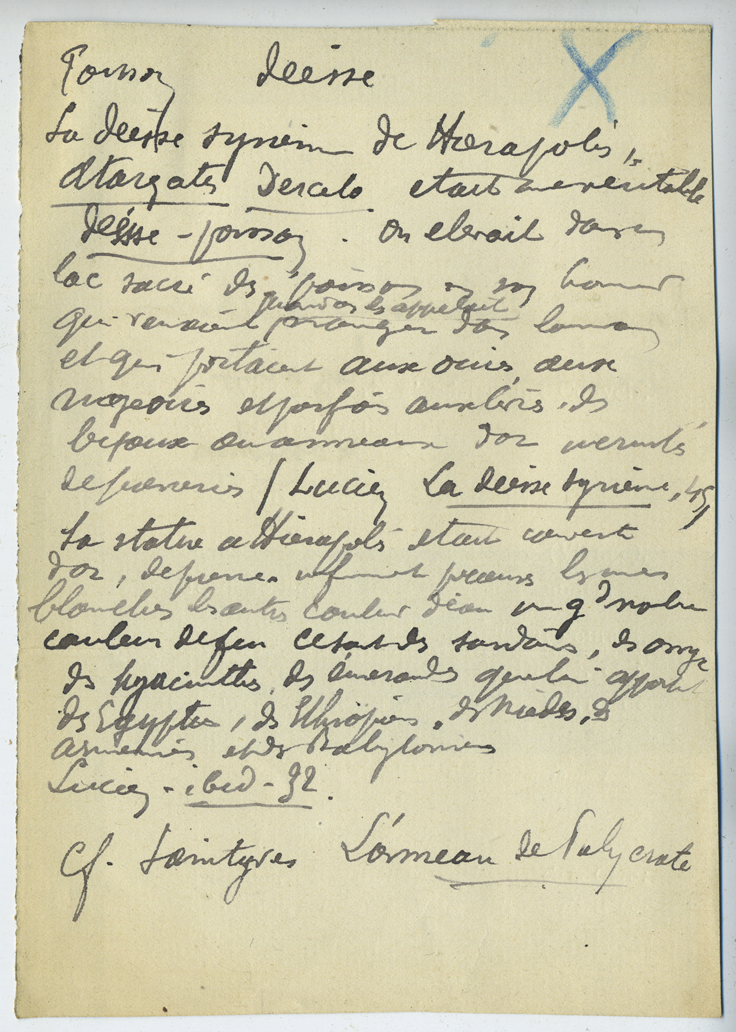 Poisson déesse
La déesse syrienne de Hierapolis,
Atargatis Derceto etait une veritable
déesse-poisson. On elevait dans un
lac sacré des poissons en son honneur
quand on les appelait
qui venaient manger dans la main
et qui portaient aux ouies, aux
nageoires et parfois aux levres, des
bijoux ou anneaux d'or incrustés
de pierreries / Lucien La déesse syrienne, 45,
La statue a Hierapolis etait couverte
d'or, de pierres infiniment precieuses les unes
blanches les autres couleur d'eau un gd nombre
couleur de feu ce sont des sardoines, des onyx
des hyacinthes, des émeraudes que lui apportent
des Egyptiens, des Ethiopiens, des Médes, des
armeniens et des Babyloniens
Lucien - ibid - 32.
Cf. Saintyves L'anneau de Polycrate